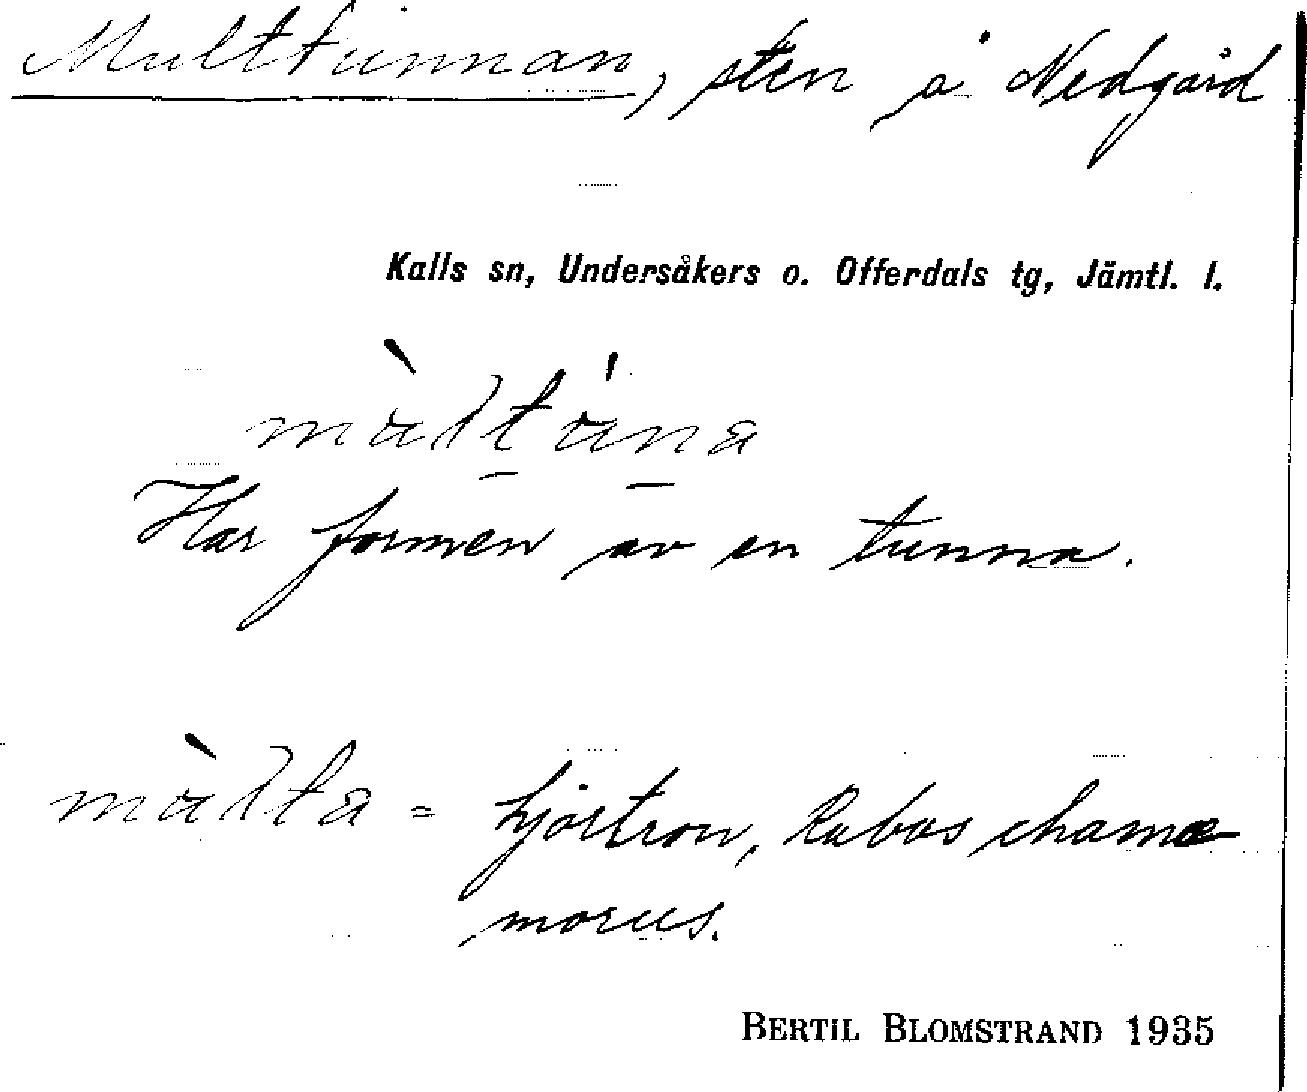 Multtunnan, sten å Nedgård
Kalls sn, Undersåkers o. Offerdals tg, Jämtl. l.
Har formen av en tunna.
= hjortron, Rubus chamæ-
morus.
BERTIL BLOMSTRAND 1935